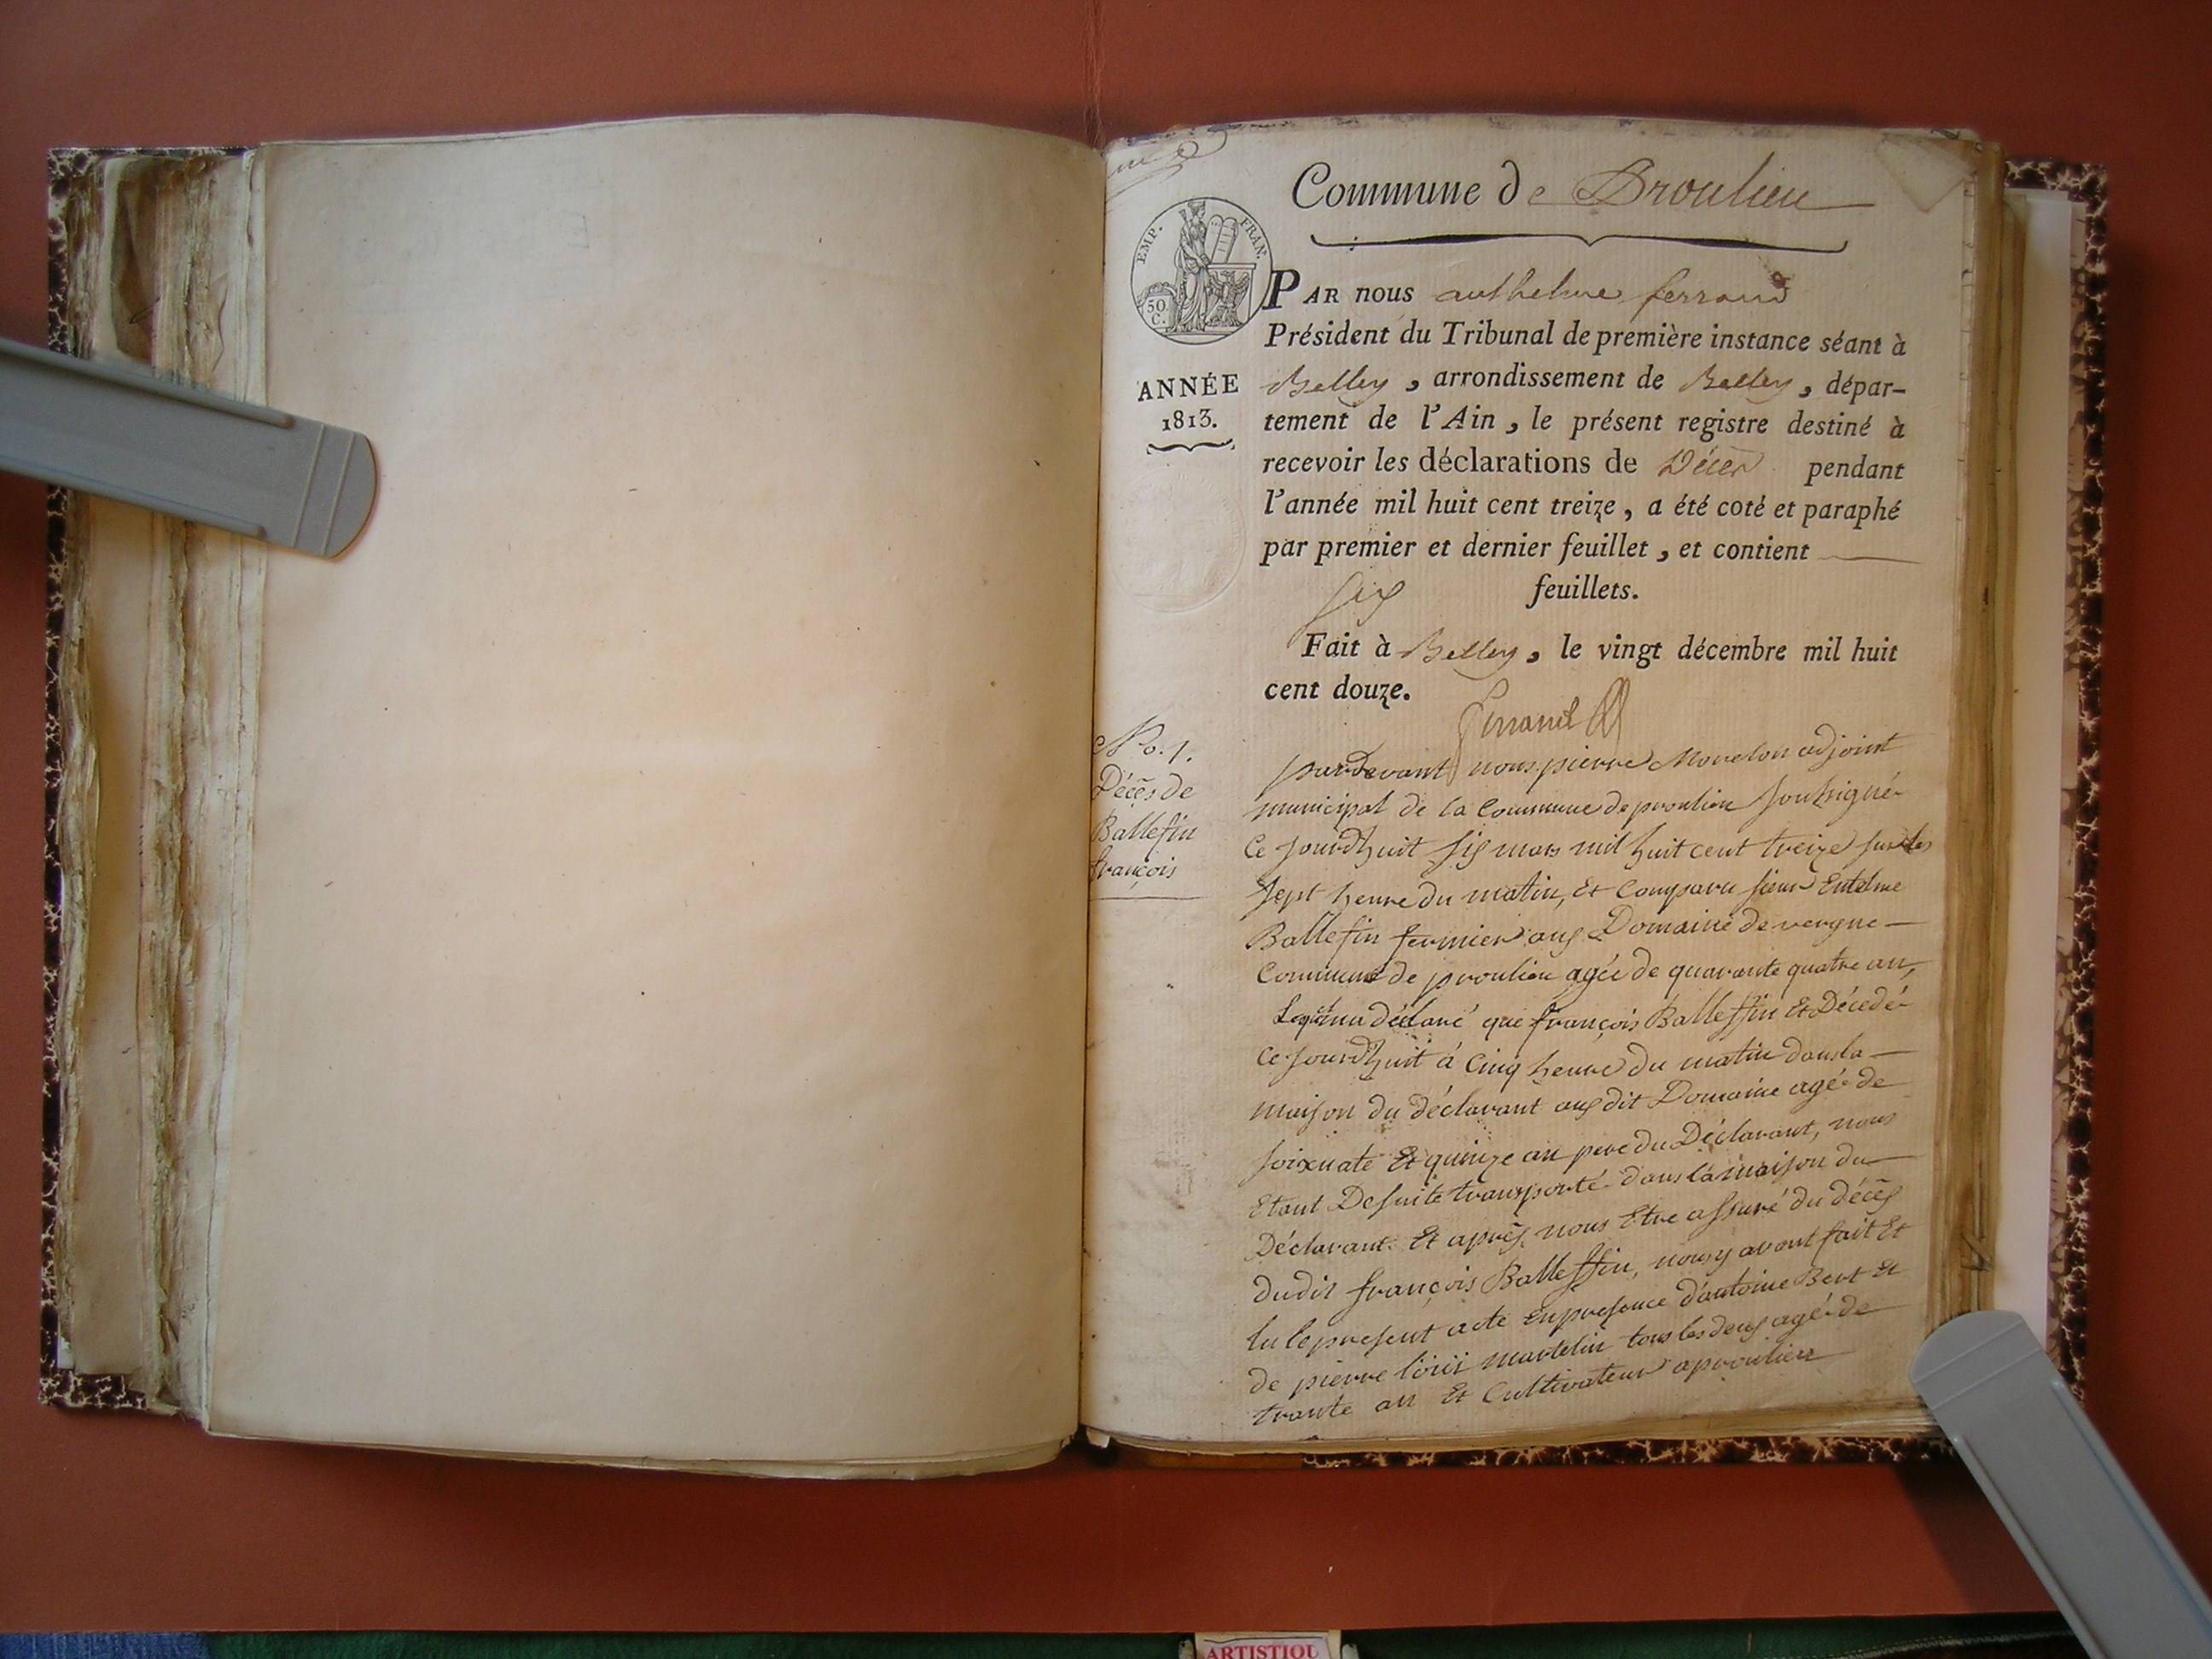 Commune de Proulieu
EMP. FRAN.
50 C.
PAR nous anthelme ferrand
Président du Tribunal de première instance séant à
Belley, arrondissement de Belley, dépar-
tement de l'Ain, le présent registre destiné à
recevoir les déclarations de Décès pendant
l'année mil huit cent treize, a été coté et paraphé
par premier et dernier feuillet, et contient
six feuillets.
Fait à Belley, le vingt décembre mil huit
cent douze.
ferrand
ANNÉE
1813.
No. 1.
Décès de
Ballefin
françois
pardevant nous pierre Morelon adjoint
municipal de la Commune de proulieu soussigné
Ce jourdhuit six mars mil huit cent treize sur les
sept heure du matin, Et Comparu sieur Entelme
Ballefin fermier aux Domaine de vergne
Commune de proulieu agée de quarante quatre an,
Lequel nous déclaré que françois Balleffin Et Décedé
Ce jourdhuit à Cinq heure du matin dans la
maison du déclarant aux dit Domaine agé de
soixnate Et quinze an pere du Déclarant, nous
Etant De suite transporté dans la maison du
Déclarant. Et après nous Etre assuré du décès
dudit françois Balleffin, nous y avont fait Et
lu le present acte En presence d'antoine Bert Et
de pierre loüis martelin tous les deux agé de
trante an Et Cultivateur a proulieu
ARTISTIQU